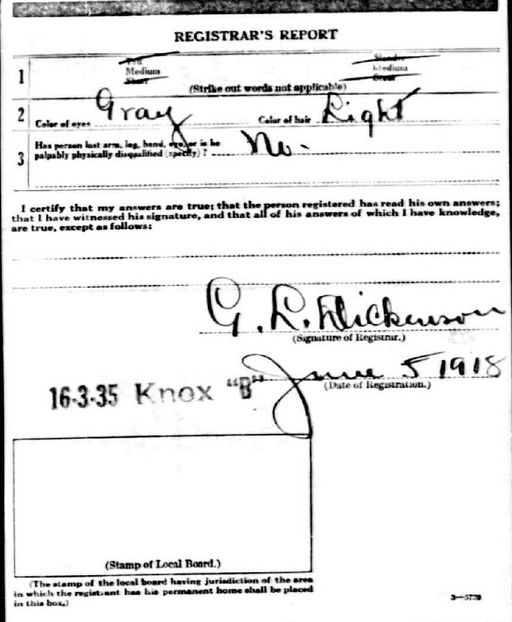 REGISTRAR'S REPORT
1 Tall Slender
Medium Medium
Short Stout
(Strike out words not applicable)
2 Color of eyes Gray Color of hair Light
3 Has person lost arm, leg, hand, eye, or is he
palpably physically disqualified (specify)? No.
I certify that my answers are true; that the person registered has read his own answers;
that I have witnessed his signature, and that all of his answers of which I have knowledge,
are true, except as follows:
G. L. Dickenson
(Signature of Registrar.)
16-3-35 Knox "B" June 5 1918
(Date of Registration.)
(Stamp of Local Board.)
(The stamp of the local board having jurisdiction of the area
in which the registrant has his permanent home shall be placed
in this box.)
3—5729